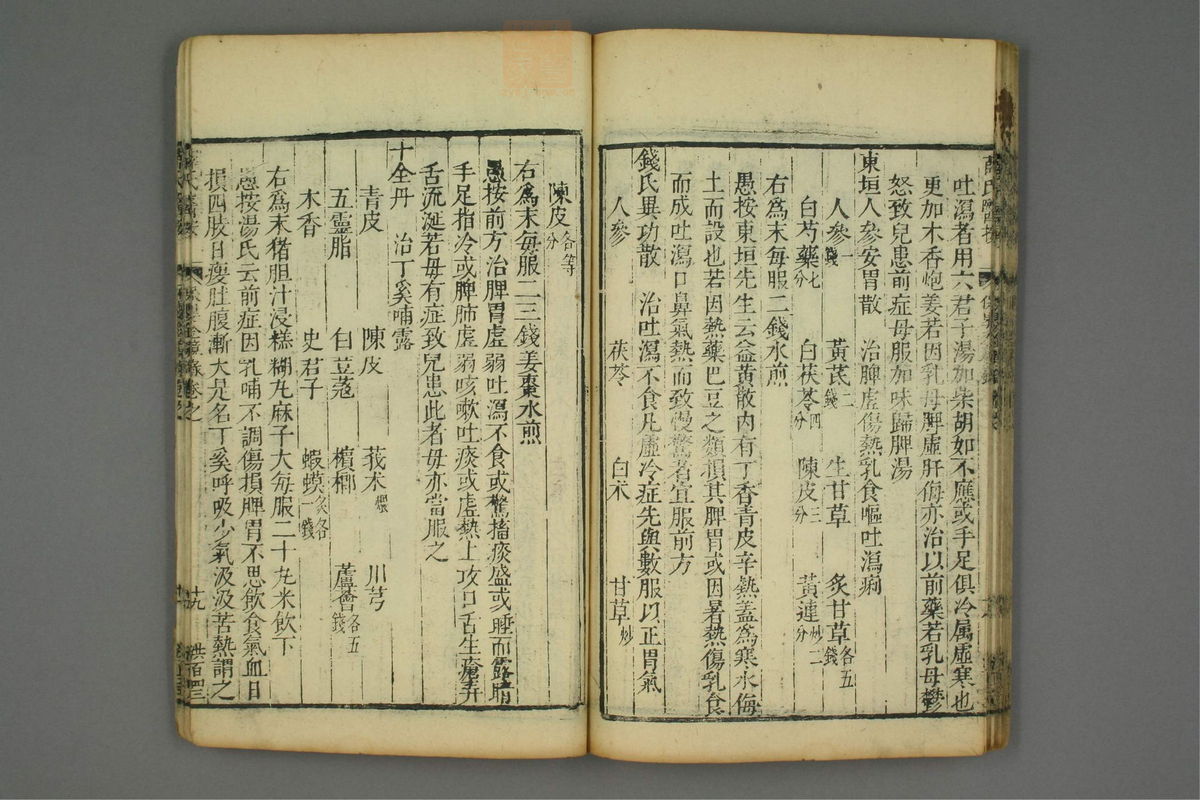 吐瀉者用六君子湯加柴胡如不應或手足俱冷属虛寒也
更加木香炮姜若因乳母脾虛肝侮亦治以前藥若乳母鬱
怒致兒患前症母服加味歸脾湯
東垣人參安胃散　治脾虛傷熱乳食嘔吐瀉痢
人參一錢　黃芪二錢　生甘草　炙甘草各五錢
白芍藥七分　白茯苓四分　陳皮三分　黃連炒二分
右為末每服二錢水煎
愚按東垣先生云益黃散內有丁香青皮辛熱蓋為寒水侮
土而設也若因熱藥巴豆之類損其脾胃或因暑熱傷乳食
而成吐瀉口鼻氣熱而致慢驚者宜服前方
錢氏異功散　治吐瀉不食凡虛冷症先與數服以正胃氣
人參　茯苓　白朮　甘草炒
陳皮各等分
右為末每服二三錢姜棗水煎
愚按前方治脾胃虛弱吐瀉不食或驚搐痰盛或睡而露睛
手足指冷或脾肺虛弱咳嗽吐痰或虛熱上攻口舌生瘡弄
舌流涎若母有症致兒患此者母亦當服之
十全丹　治丁奚哺露
青皮　陳皮　莪朮煨　川芎
五靈脂　白荳蔻　檳榔　蘆薈各五錢
木香　史君子　蝦蟆灸各一錢
右為末猪胆汁浸糕糊丸麻子大每服二十丸米飲下
愚按湯氏云前症因乳哺不調傷損脾胃不思飲食氣血日
損四肢日瘦肚腹漸大是名丁奚呼吸少氣汲汲苦熱謂之